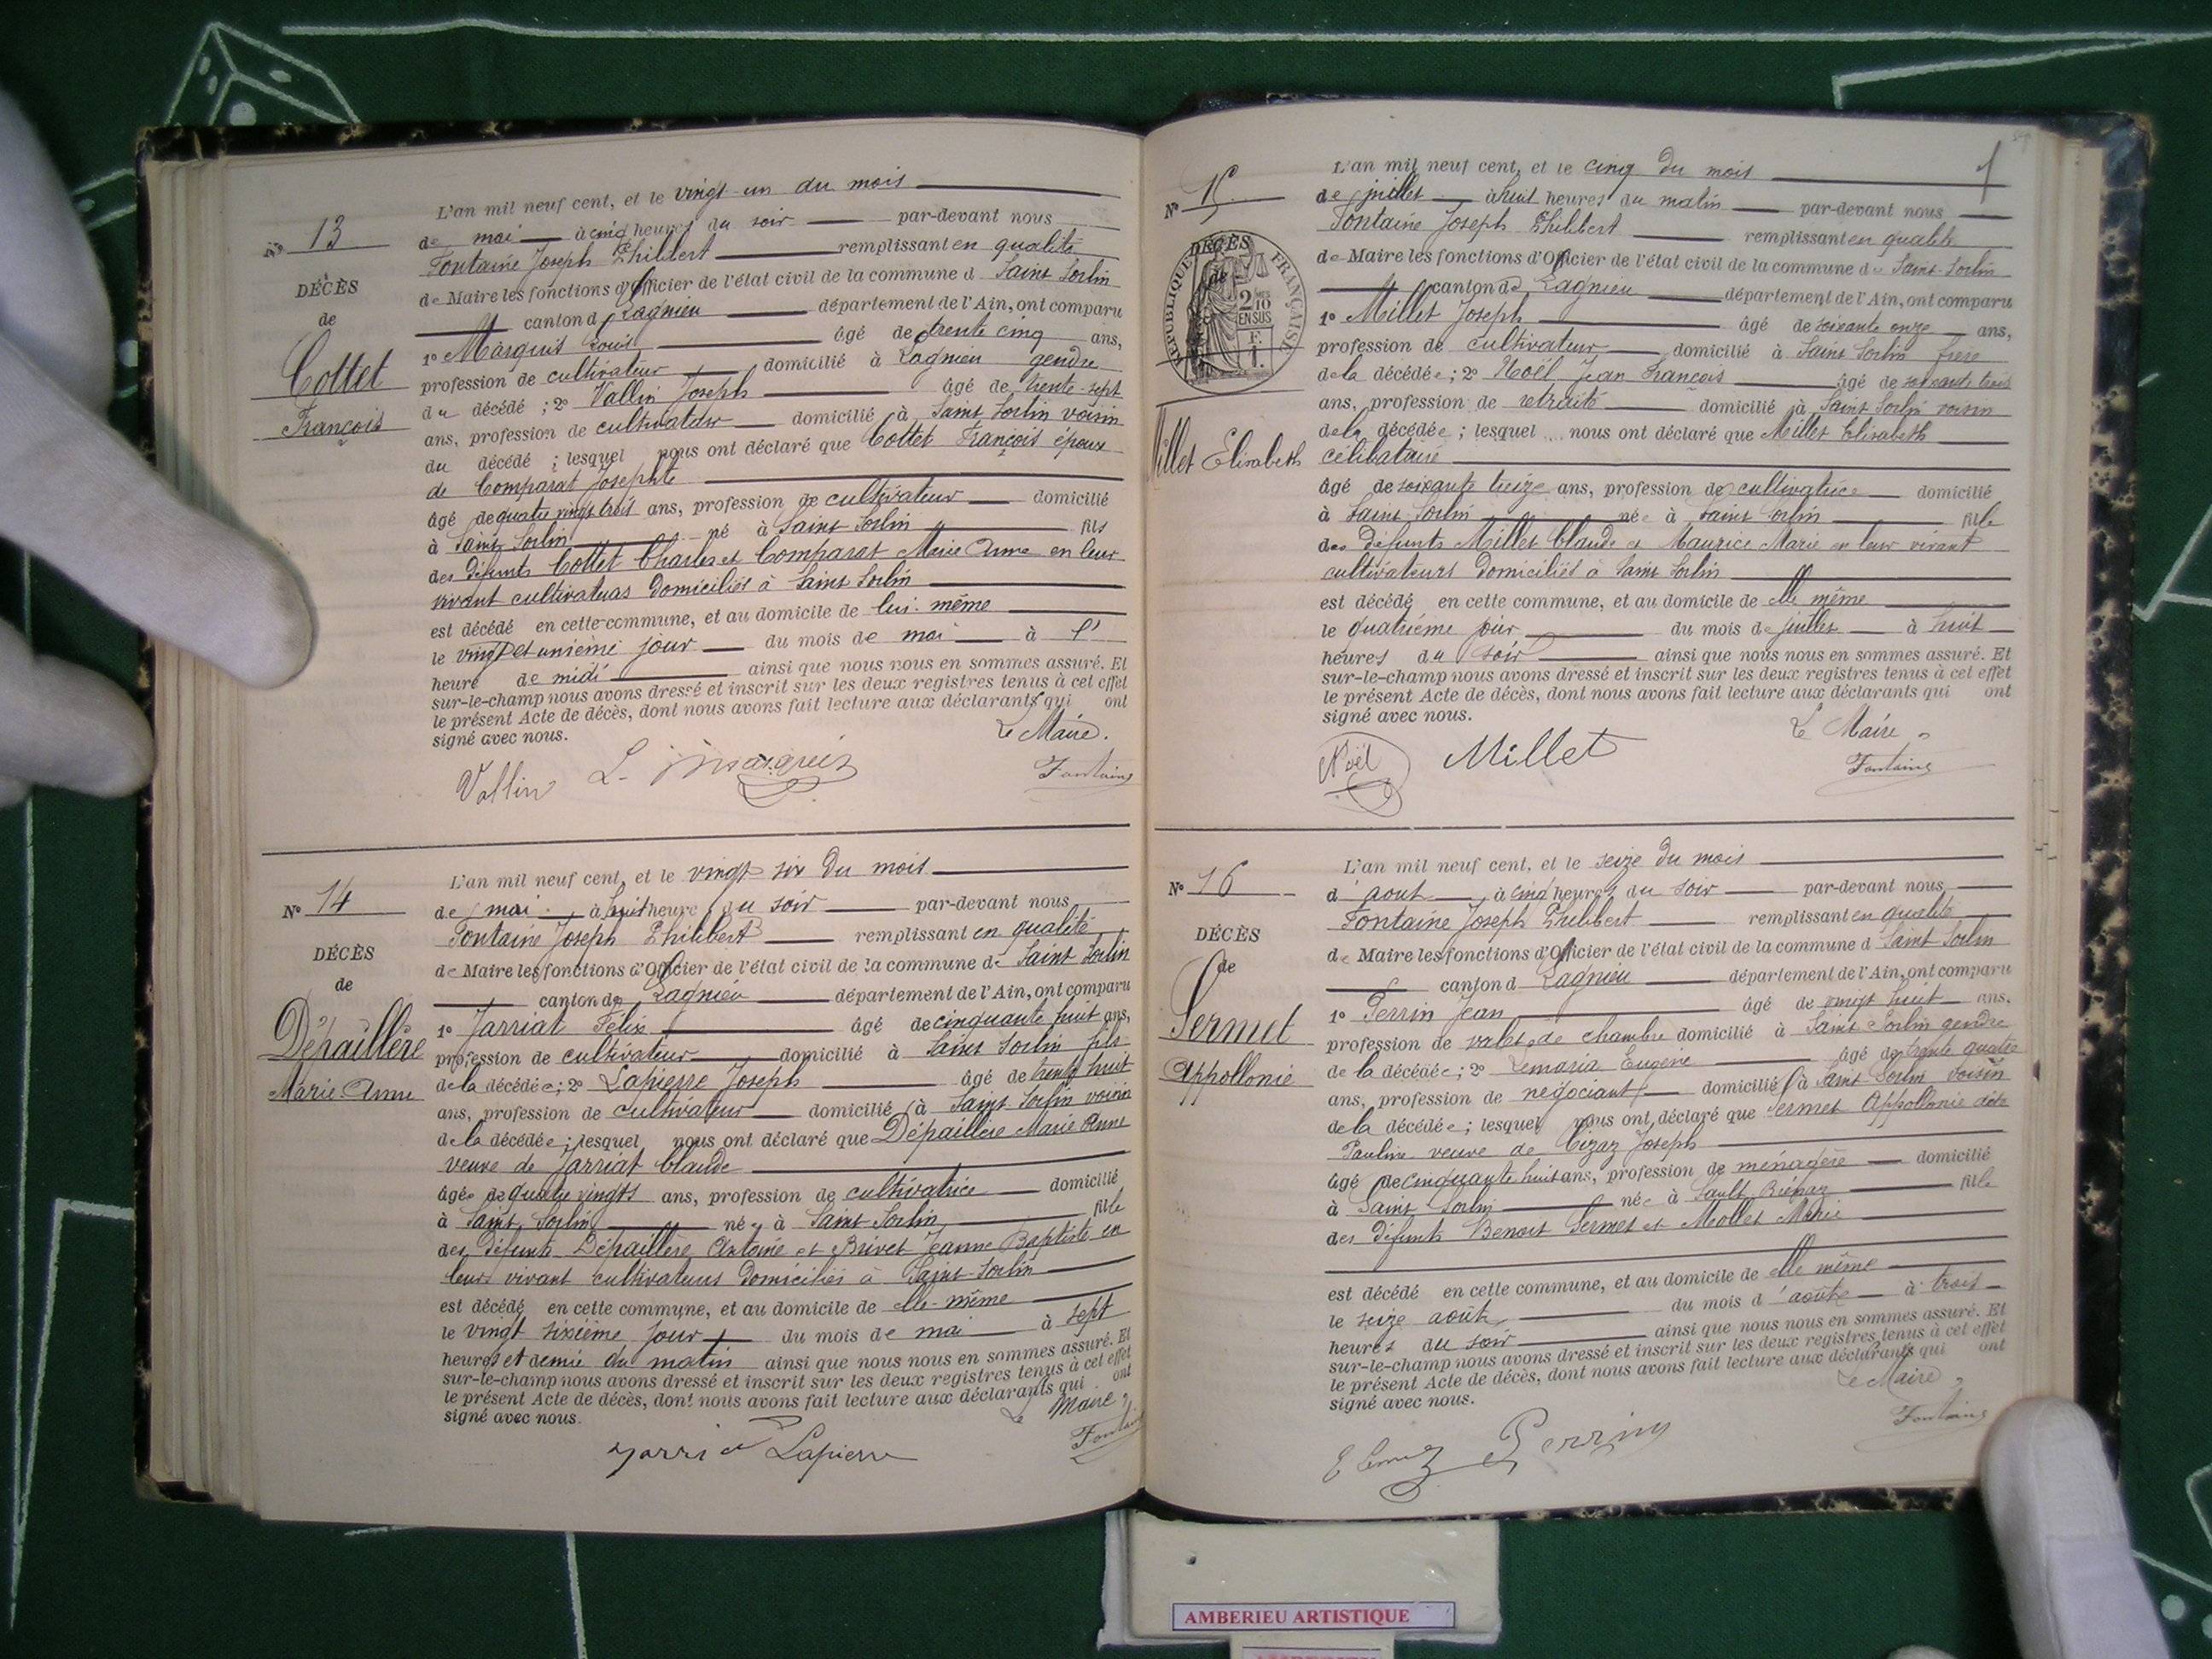 L'an mil neuf cent, et le vingt-un du mois
Nº 13
de mai à cinq heures du soir par-devant nous
Fontaine Joseph Philibert remplissant en qualité
de Maire les fonctions d'Officier de l'état civil de la commune d Saint Sorlin
canton d Lagnieu département de l'Ain, ont comparu
DÉCÈS
de
Cottet
François
1º Marquis Louis âgé de trente cinq ans,
profession de cultivateur domicilié à Lagnieu gendre
du décédé ; 2º Vallin Joseph âgé de trente-sept
ans, profession de cultivateur domicilié à Saint Sorlin voisin
du décédé ; lesquel nous ont déclaré que Cottet François époux
de Comparat Josephte
âgé de quatre vingt trois ans, profession de cultivateur domicilié
à Saint Sorlin né à Saint Sorlin fils
des défunts Cottet Charles et Comparat Marie Anne en leur
vivant cultivateurs domiciliés à Saint Sorlin
est décédé en cette commune, et au domicile de lui-même
le vingt et unième jour du mois de mai à
heure de midi ainsi que nous nous en sommes assuré. Et
sur-le-champ nous avons dressé et inscrit sur les deux registres tenus à cet effet
le présent Acte de décès, dont nous avons fait lecture aux déclarants qui ont
signé avec nous. Le Maire.
Vallin L. Marquis Fontaine
L'an mil neuf cent, et le vingt six du mois
Nº 14
de mai à huit heure du soir par-devant nous
Fontaine Joseph Philibert remplissant en qualité
de Maire les fonctions d'Officier de l'état civil de la commune de Saint Sorlin
canton de Lagnieu département de l'Ain, ont comparu
DÉCÈS
de
Dépaillère
Marie Anne
1º Jarriat Félix âgé de cinquante huit ans,
profession de cultivateur domicilié à Saint Sorlin fils
de la décédée ; 2º Lapierre Joseph âgé de trente huit
ans, profession de cultivateur domicilié à Saint Sorlin voisin
de la décédée ; lesquel nous ont déclaré que Dépaillère Marie Anne
veuve de Jarriat Claude
âgée de quatre vingts ans, profession de cultivatrice domicilié
à Saint Sorlin née à Saint-Sorlin fille
des défunts Dépaillère Antoine et Brivet Jeanne Baptiste en
leur vivant cultivateurs domiciliés à Saint-Sorlin
est décédé en cette commune, et au domicile de elle-même
le vingt sixième jour du mois de mai à sept
heures et demie du matin ainsi que nous nous en sommes assuré. Et
sur-le-champ nous avons dressé et inscrit sur les deux registres tenus à cet effet
le présent Acte de décès, dont nous avons fait lecture aux déclarants qui ont
signé avec nous. Le Maire
Jarriat Lapierre Fontaine
L'an mil neuf cent, et le cinq du mois
Nº 15
de juillet à huit heures du matin par-devant nous
Fontaine Joseph Philibert remplissant en qualité
de Maire les fonctions d'Officier de l'état civil de la commune de Saint-Sorlin
canton de Lagnieu département de l'Ain, ont comparu
DÉCÈS
de
RÉPUBLIQUE FRANÇAISE
2 MES
10
EN SUS
F.
1.
Millet Elisabeth
1º Millet Joseph âgé de soixante onze ans,
profession de cultivateur domicilié à Saint Sorlin frère
de la décédée ; 2º Noël Jean François âgé de soixante trois
ans, profession de retraité domicilié à Saint Sorlin voisin
de la décédée ; lesquel nous ont déclaré que Millet Elisabeth
célibataire
âgé de soixante treize ans, profession de cultivatrice domicilié
à Saint Sorlin née à Saint Sorlin fille
des défunts Millet Claude et Maurice Marie en leur vivant
cultivateurs domiciliés à Saint Sorlin
est décédé en cette commune, et au domicile de elle même
le quatrième jour du mois de juillet à huit
heures du soir ainsi que nous nous en sommes assuré. Et
sur-le-champ nous avons dressé et inscrit sur les deux registres tenus à cet effet
le présent Acte de décès, dont nous avons fait lecture aux déclarants qui ont
signé avec nous. Le Maire
Noël Millet Fontaine
L'an mil neuf cent, et le seize du mois
Nº 16
d'aout à cinq heures du soir par-devant nous
Fontaine Joseph Philibert remplissant en qualité
de Maire les fonctions d'Officier de l'état civil de la commune d Saint Sorlin
canton d Lagnieu département de l'Ain, ont comparu
DÉCÈS
de
Sermet
Appollonie
1º Perrin Jean âgé de vingt huit ans,
profession de valet de chambre domicilié à Saint Sorlin gendre
de la décédée ; 2º Eugène âgé de trente quatre
ans, profession de négociant domicilié à Saint-Sorlin voisin
de la décédée ; lesquel nous ont déclaré que Sermet Appollonie dite
Pauline veuve de Cizaz Joseph
âgé de cinquante huit ans, profession de ménagère domicilié
à Saint Sorlin née à Sault Brénaz fille
des défunts Benoit Sermet et Mollet Marie
est décédé en cette commune, et au domicile de elle même
le seize août du mois d'août à trois
heures du soir ainsi que nous nous en sommes assuré. Et
sur-le-champ nous avons dressé et inscrit sur les deux registres tenus à cet effet
le présent Acte de décès, dont nous avons fait lecture aux déclarants qui ont
signé avec nous. Le Maire
Perrin Fontaine
AMBERIEU ARTISTIQUE